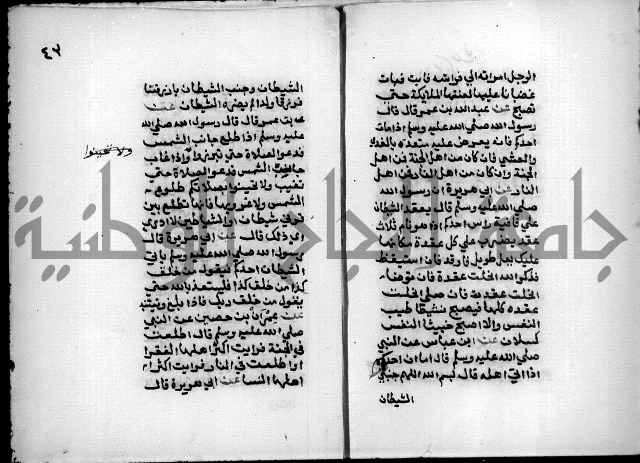 الرجل امراته الي فراشه فابت فبات
غضبانا عليها لعنتها الملايكة حتي
تصبح عن عبد الله بن عمر قال قال
رسول الله صلي الله عليه وسلم اذا مات
احدكم فانه يعرض عليه مقعده بالغداة
والعشي فان كان من اهل الجنة فمن اهل
الجنة وان كان من اهل النار فمن اهل
النار عن ابي هريرة ان رسول الله
صلي الله عليه وسلم قال يعقد الشيطان
علي قافية راس احدكم اذا هو نام ثلاث
عقد يضرب علي كل عقدة مكانها
عليك ليل طويل فارقد فان استيقظ
فذكر الله انحلت عقدة فان توضا
انحلت عقدة فان صلي انحلت
عقده كلها فيصبح نشيطا طيب
النفس والا اصبح خبيث النفس
كسلان عن ابن عباس عن النبي
صلي الله عليه وسلم قال اما ان احدكم
اذا اتي اهله قال بسم الله اللهم جنبني
الشيطان
٤٦
الشيطان وجنب الشيطان ما رزقتنا
فرزقا ولدا لم يضره الشيطان عن
عبد الله بن عمر قال قال رسول الله صلي الله
عليه وسلم اذا طلع حاجب الشمس
فدعوا الصلاة حتي تبرز واذا غاب
حاجب الشمس فدعوا الصلاة حتي
تغيب ولا تحينوا بصلاتكم طلوع
الشمس ولا غروبها فانها تطلع بين
قرني شيطان او الشيطان لا ادري
اي ذلك قال عن ابي هريرة قال
رسول الله صلي الله عليه وسلم ياتي
الشيطان احدكم فيقول من خلق
كذا من خلق كذا حتي
يقول من خلق ربك فاذا بلغه فليستعذ بالله ولينته
عن عمران بن حصين عن النبي
صلي الله عليه وسلم قال اطلعت
في الجنة فرايت اكثر اهلها الفقرا
واطلعت في النار فرايت اكثر
اهلها النسا عن ابي هريرة قال
ولا تحينوا
جامعة النجاح الوطنية